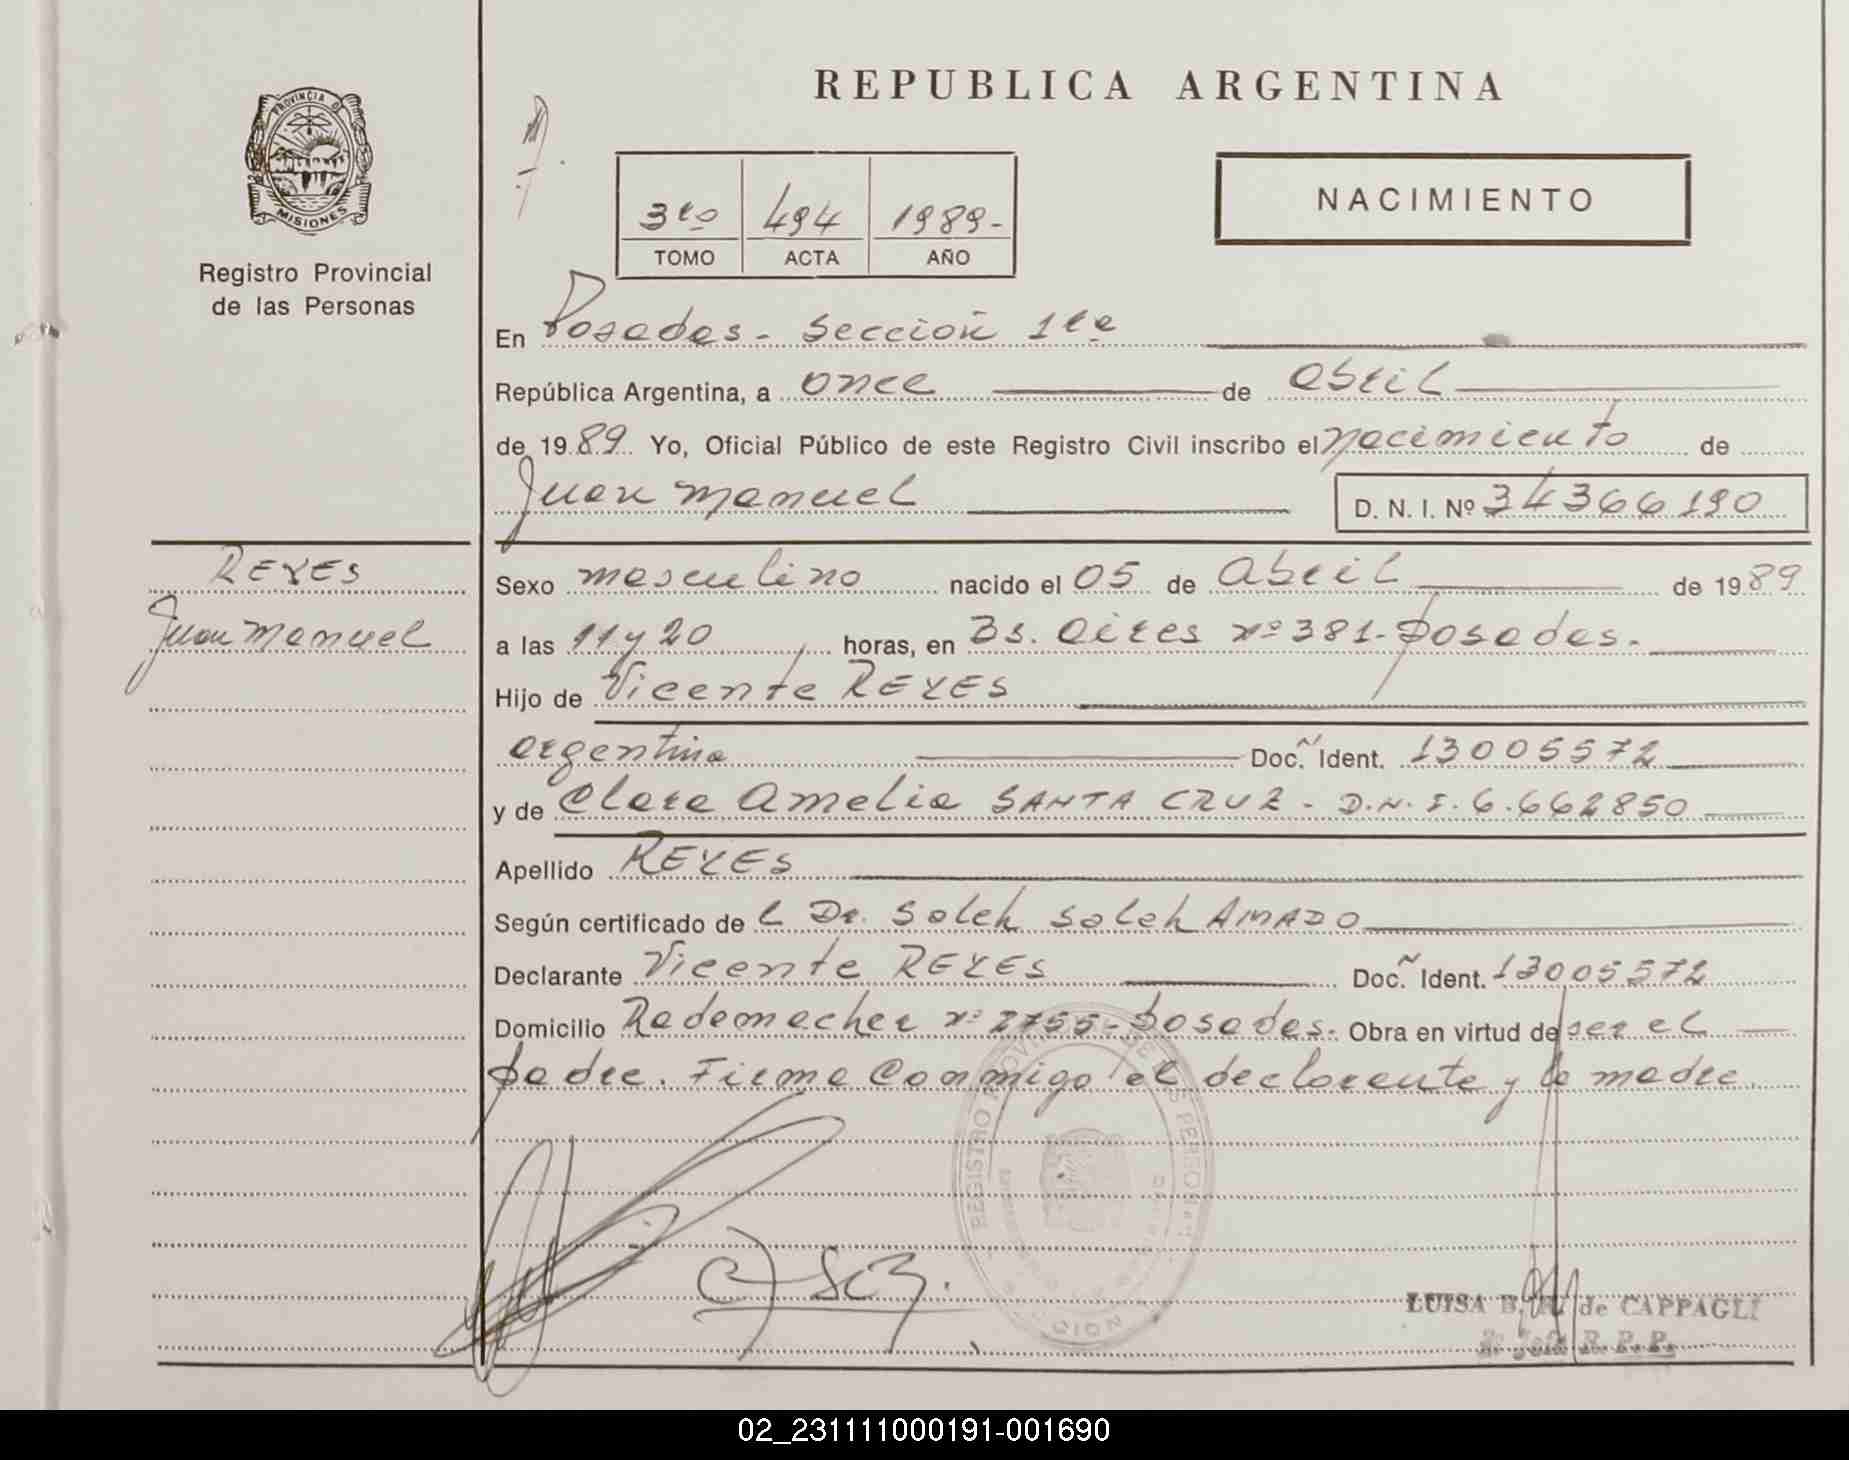 PROVINCIA DE
MISIONES
Registro Provincial
de las Personas
REYES
Juan Manuel
REPUBLICA ARGENTINA
NACIMIENTO
3ro 494 1989-
TOMO ACTA AÑO
En Posadas - Sección 1ra
República Argentina, a once de abril
de 1989 Yo, Oficial Público de este Registro Civil inscribo el nacimiento de
Juan Manuel D. N. I. Nº 34366190
Sexo masculino nacido el 05 de Abril de 1989
a las 11 y 20 horas, en Bs. Aires nº 381 - Posadas.
Hijo de Vicente REYES
argentina Doc. Ident. 13005572
y de Clara Amelia SANTA CRUZ - D.N.I. 6.662850
Apellido REYES
Según certificado de l Dr. Saleh Saleh AMADO
Declarante Vicente REYES Doc. Ident. 13005572
Domicilio Rademacher nº 2755 - Posadas. Obra en virtud de ser el
padre. Firma conmigo el declarante y la madre.
REGISTRO PROVINCIAL DE LAS PERSONAS
LUISA B. R. de CAPPAGLI
2º Jefe R. P. P.
02_231111000191-001690